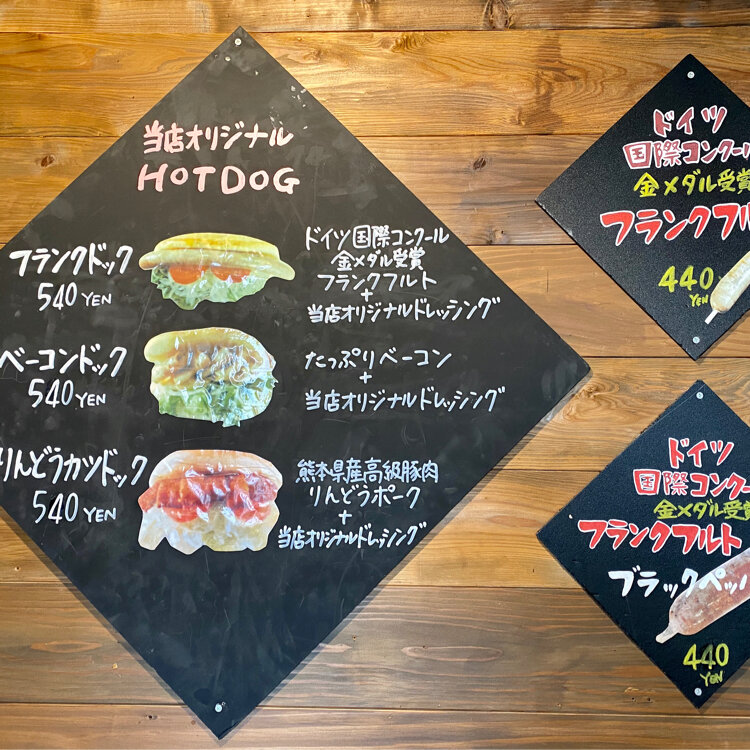 当店オリジナル
HOTDOG
フランクドック
540 YEN
ドイツ国際コンクール
金メダル受賞
フランクフルト
+
当店オリジナルドレッシング
ベーコンドック
540 YEN
たっぷりベーコン
+
当店オリジナルドレッシング
りんどうカツドック
540 YEN
熊本県産高級豚肉
りんどうポーク
+
当店オリジナルドレッシング
ドイツ
国際コンクール
金メダル受賞
フランクフル
440
YEN
ドイツ
国際コンクー
金メダル受賞
フランクフルト
ブラックペッパ
440
YEN